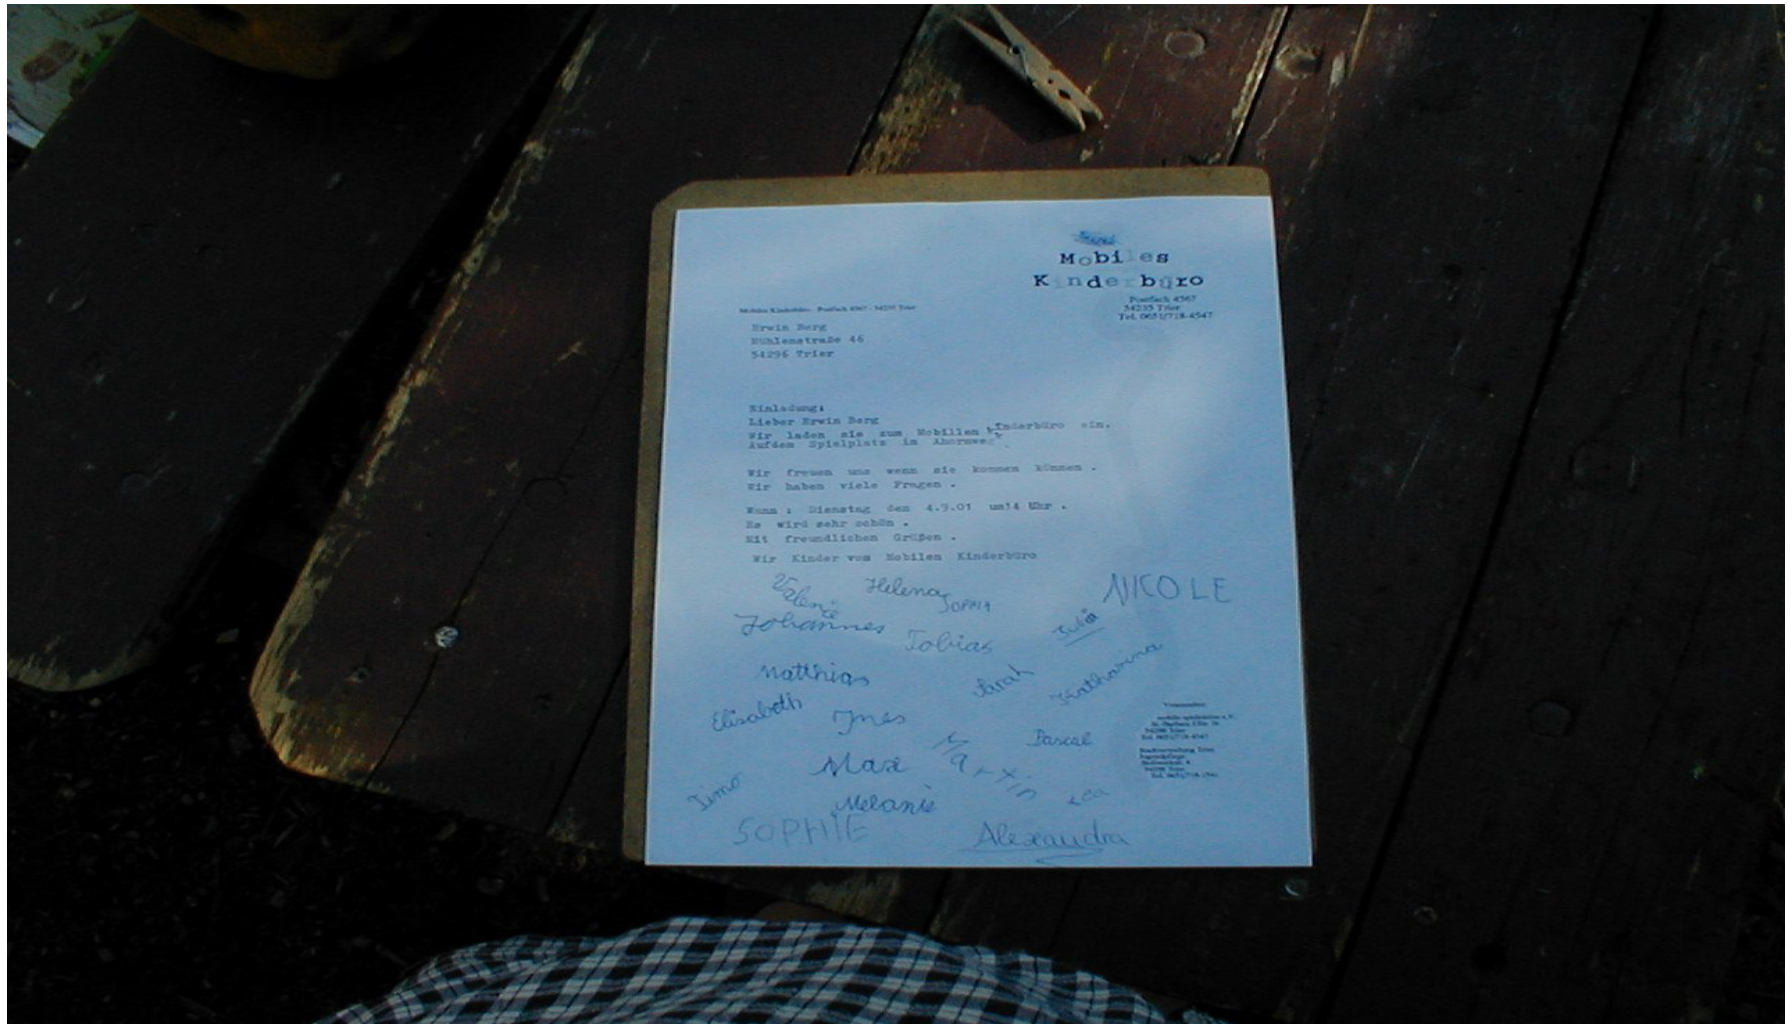 Mobiles
Kinderbüro
Postfach 4567
54235 Trier
Tel. 0651/718-4547
Mobiles Kinderbüro - Postfach 4567 - 54235 Trier
Erwin Berg
Mühlenstraße 46
54296 Trier
Einladung:
Lieber Erwin Berg
Wir laden sie zum Mobillen Kinderbüro ein.
Aufdem Spielplatz im Ahornweg.
Wir freuen uns wenn sie kommen können .
Wir haben viele Fragen .
Wann : Dienstag den 4.9.01 um14 Uhr .
Es wird sehr schön .
Mit freundlichen Grüßen .
Wir Kinder vom Mobilen Kinderbüro
Valerie Helena SOPHIA NICOLE
Johannes Tobias Julia
Matthias Sarah Katharina
Elisabeth Ines Pascal
Max Martin
Timo Melanie Lea
SOPHIE Alexandra
Stadtverwaltung Trier